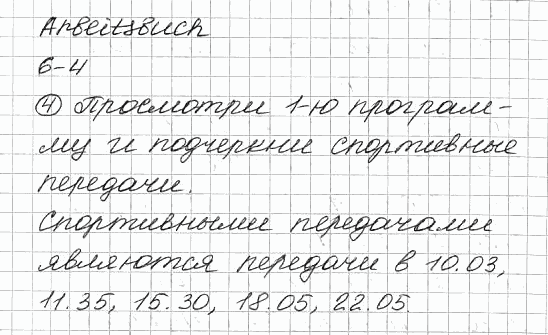 Arbeitsbuch
6-4
④ Просмотри 1-ю програм-
му и подчеркни спортивные
передачи.
Спортивными передачами
являются передачи в 10.03,
11.35, 15.30, 18.05, 22.05.